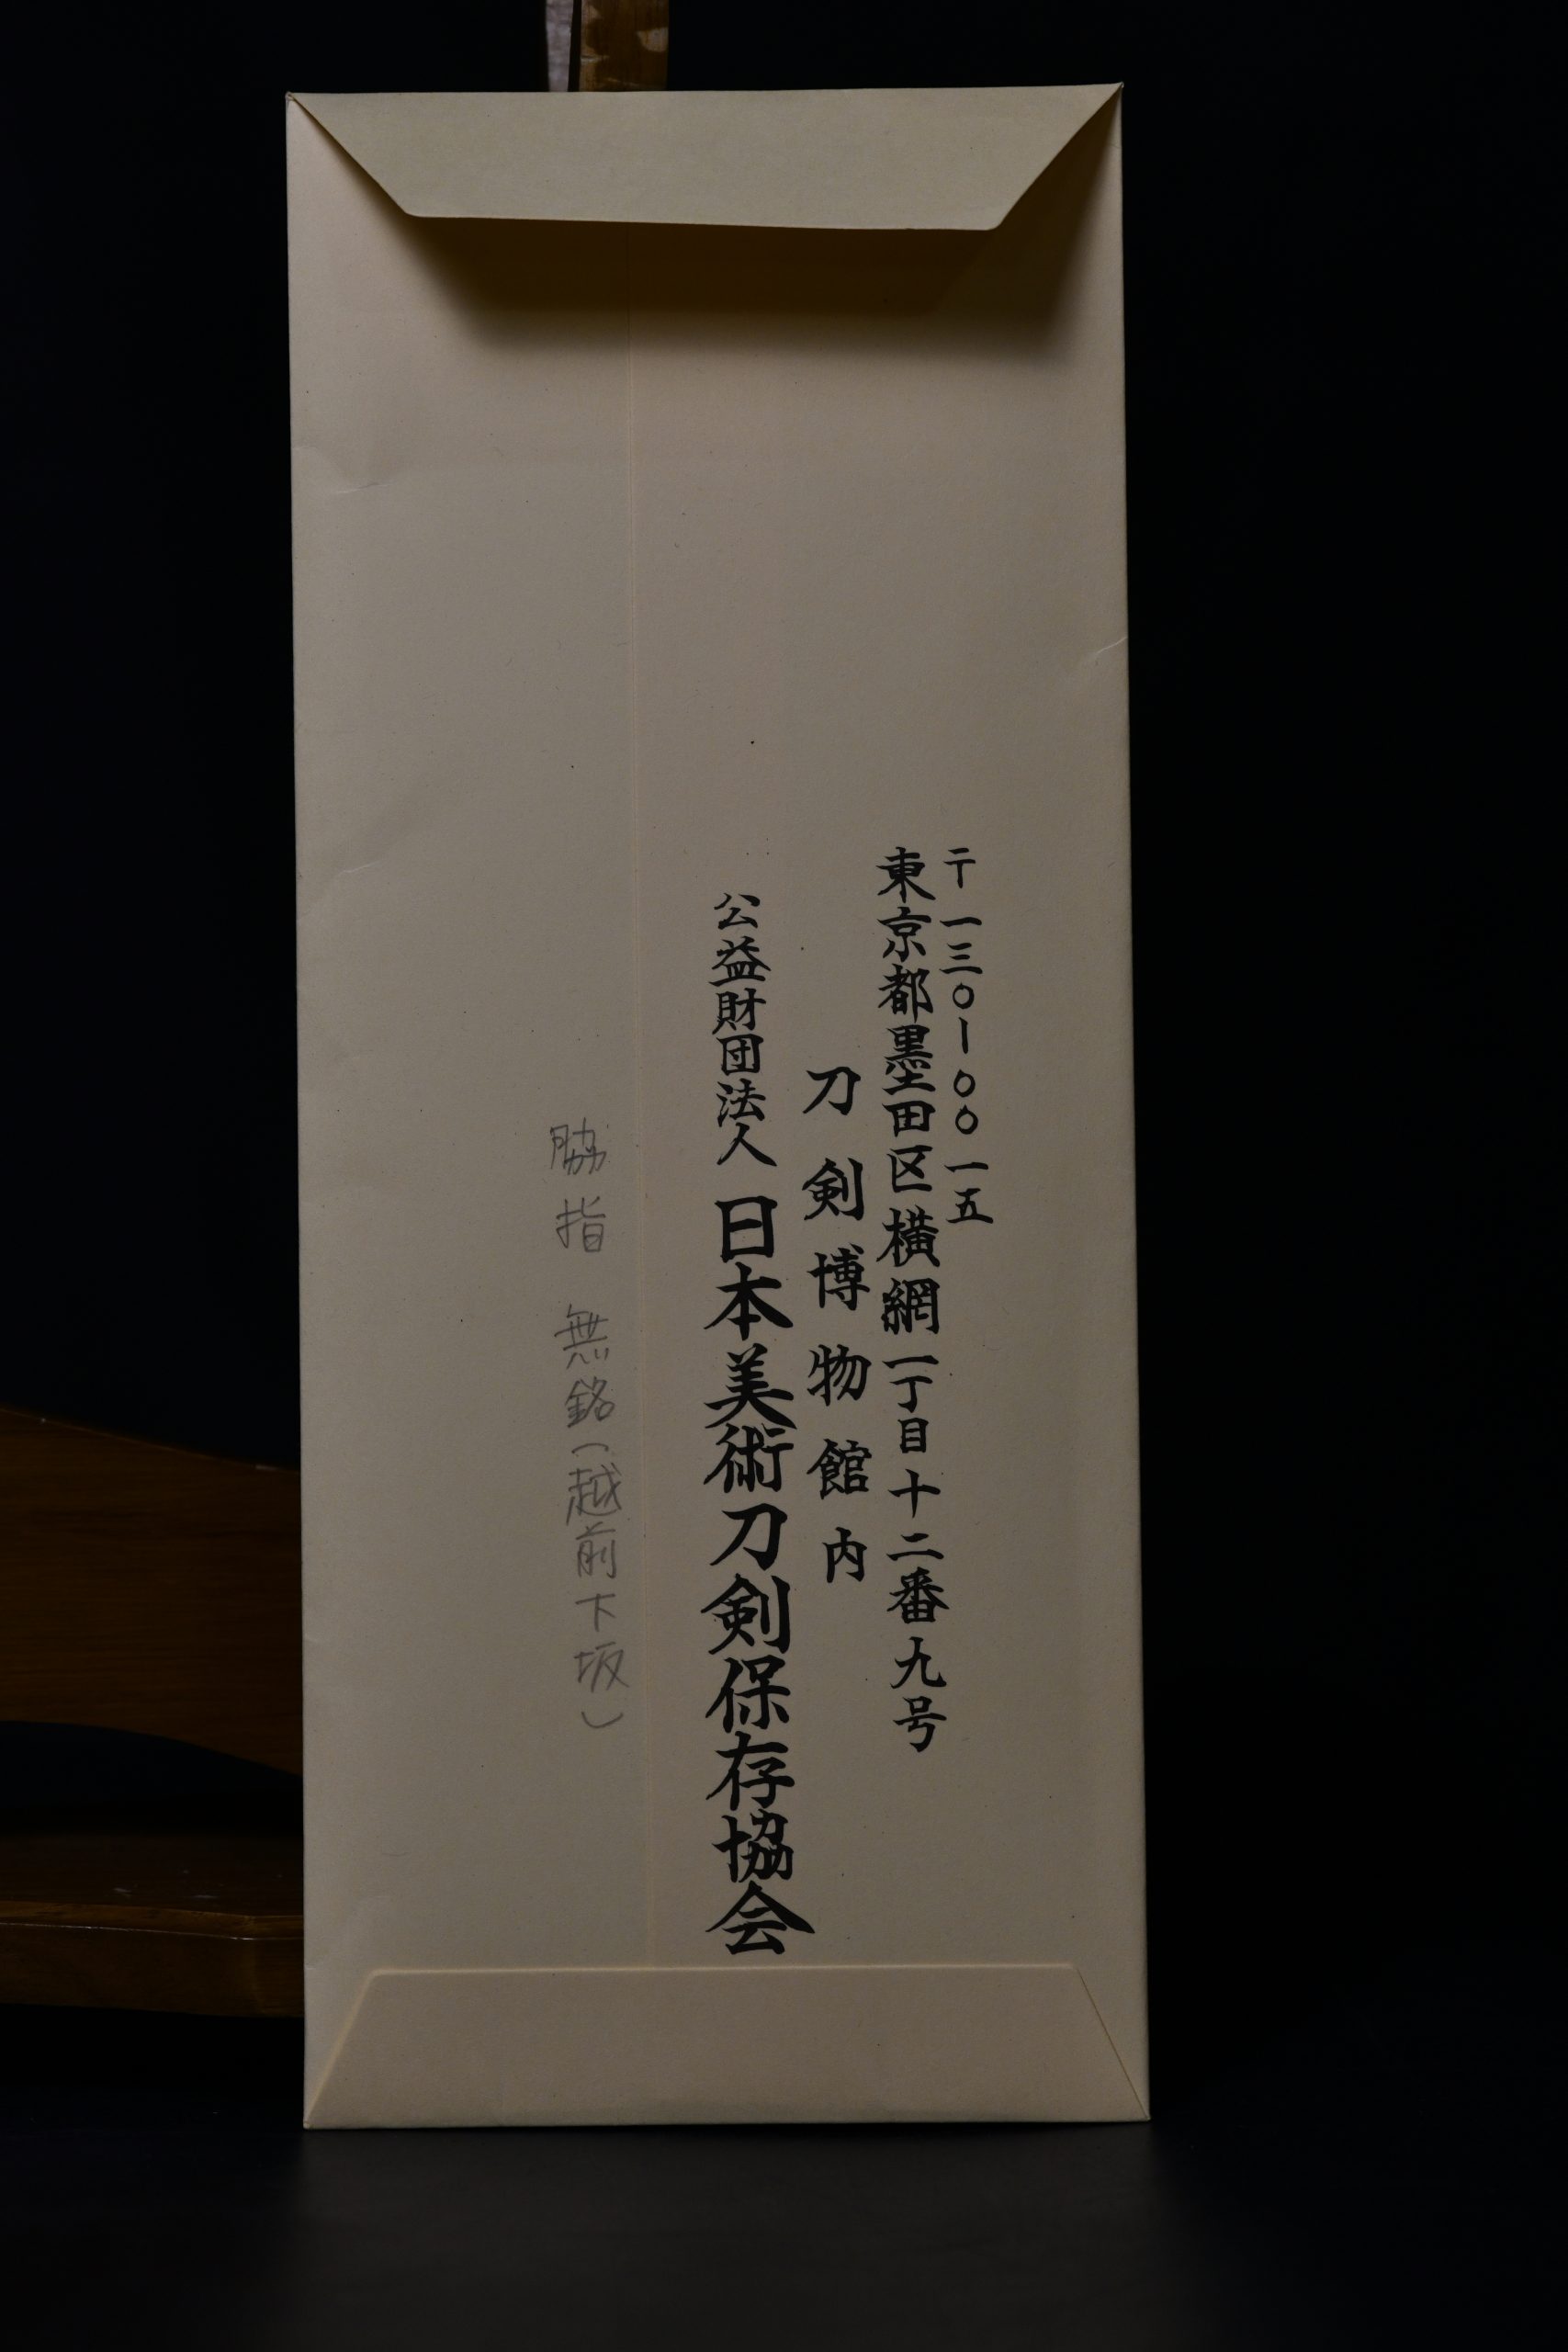 〒一三〇-〇〇一五
東京都墨田区横網一丁目十二番九号
刀剣博物館内
公益財団法人 日本美術刀剣保存協会
脇指 無銘(越前下坂)